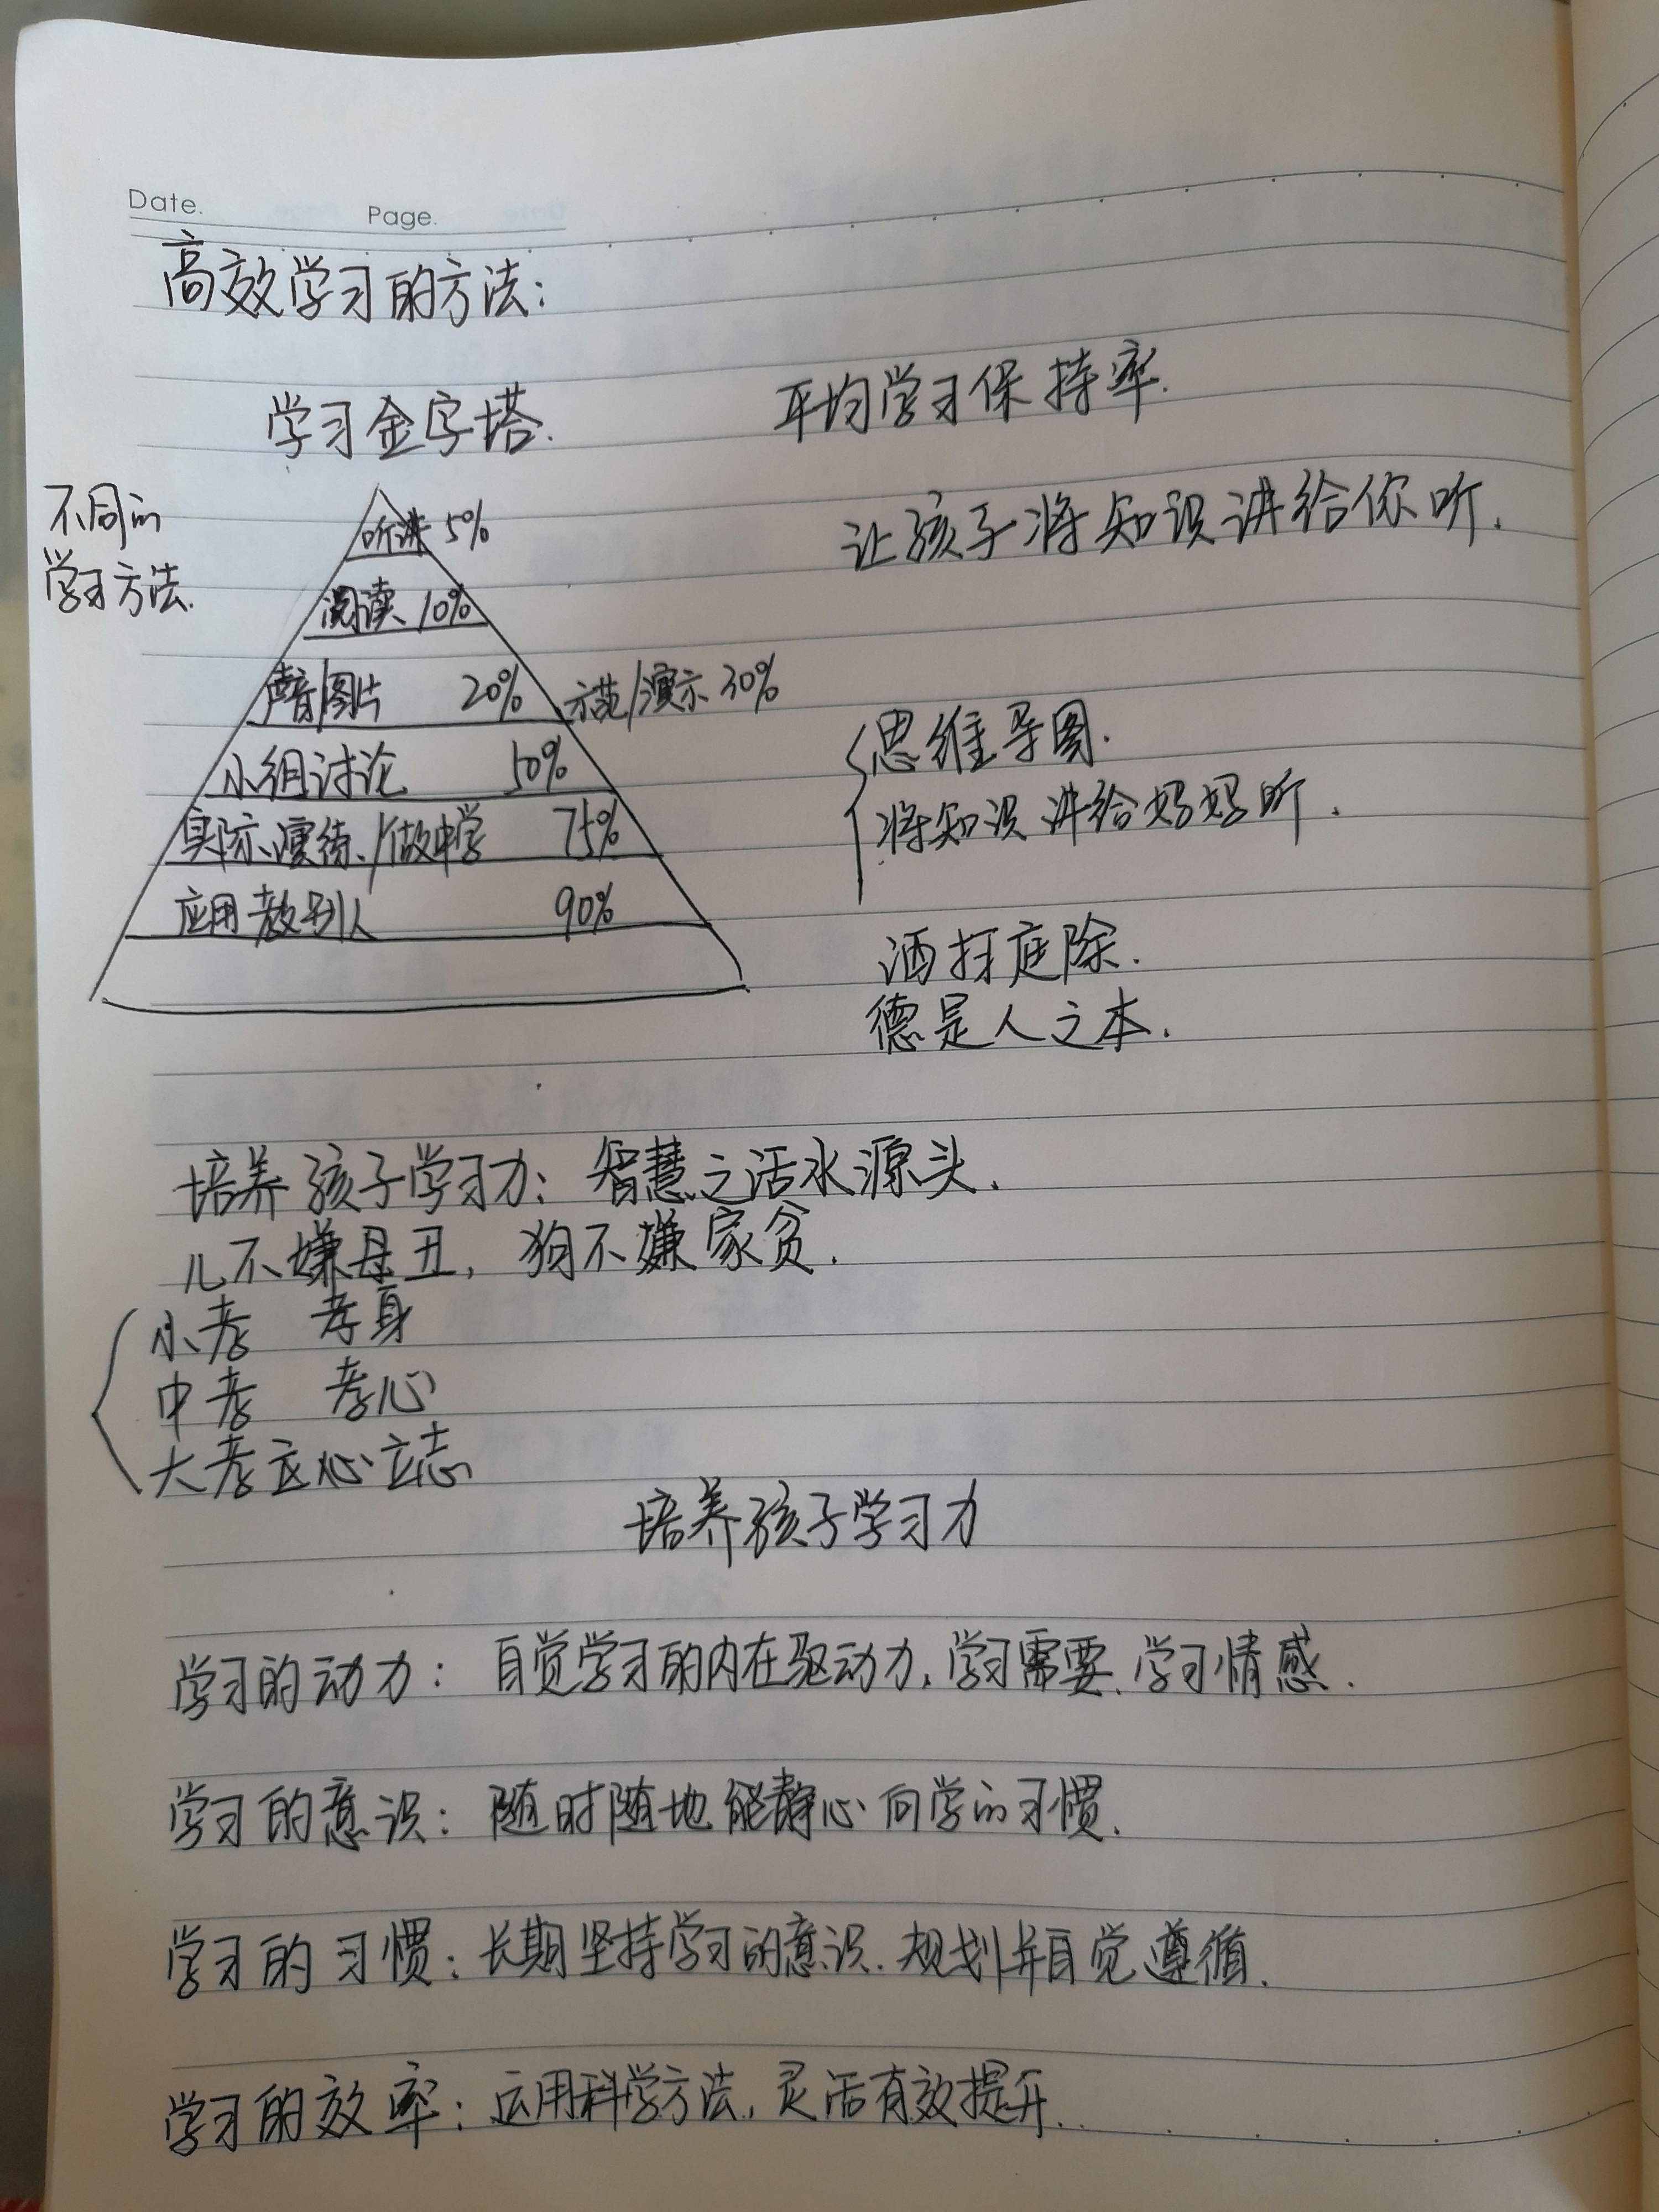 Date.
Page.
高效学习的方法：
学习金字塔.
平均学习保持率.
不同的
学习方法.
听讲 5%
让孩子将知识讲给你听.
阅读 10%
声音/图片 20% 示范/演示 30%
小组讨论 50%
实际演练/做中学 75%
应用教别人 90%
思维导图.
将知识讲给妈妈听.
洒扫庭除.
德是人之本.
培养孩子学习力：智慧之活水源头.
儿不嫌母丑，狗不嫌家贫.
小孝 孝身
中孝 孝心
大孝 立心立志
培养孩子学习力
学习的动力：自觉学习的内在驱动力，学习需要、学习情感.
学习的意识：随时随地能静心向学的习惯.
学习的习惯：长期坚持学习的意识.规划并自觉遵循.
学习的效率：运用科学方法，灵活有效提升.